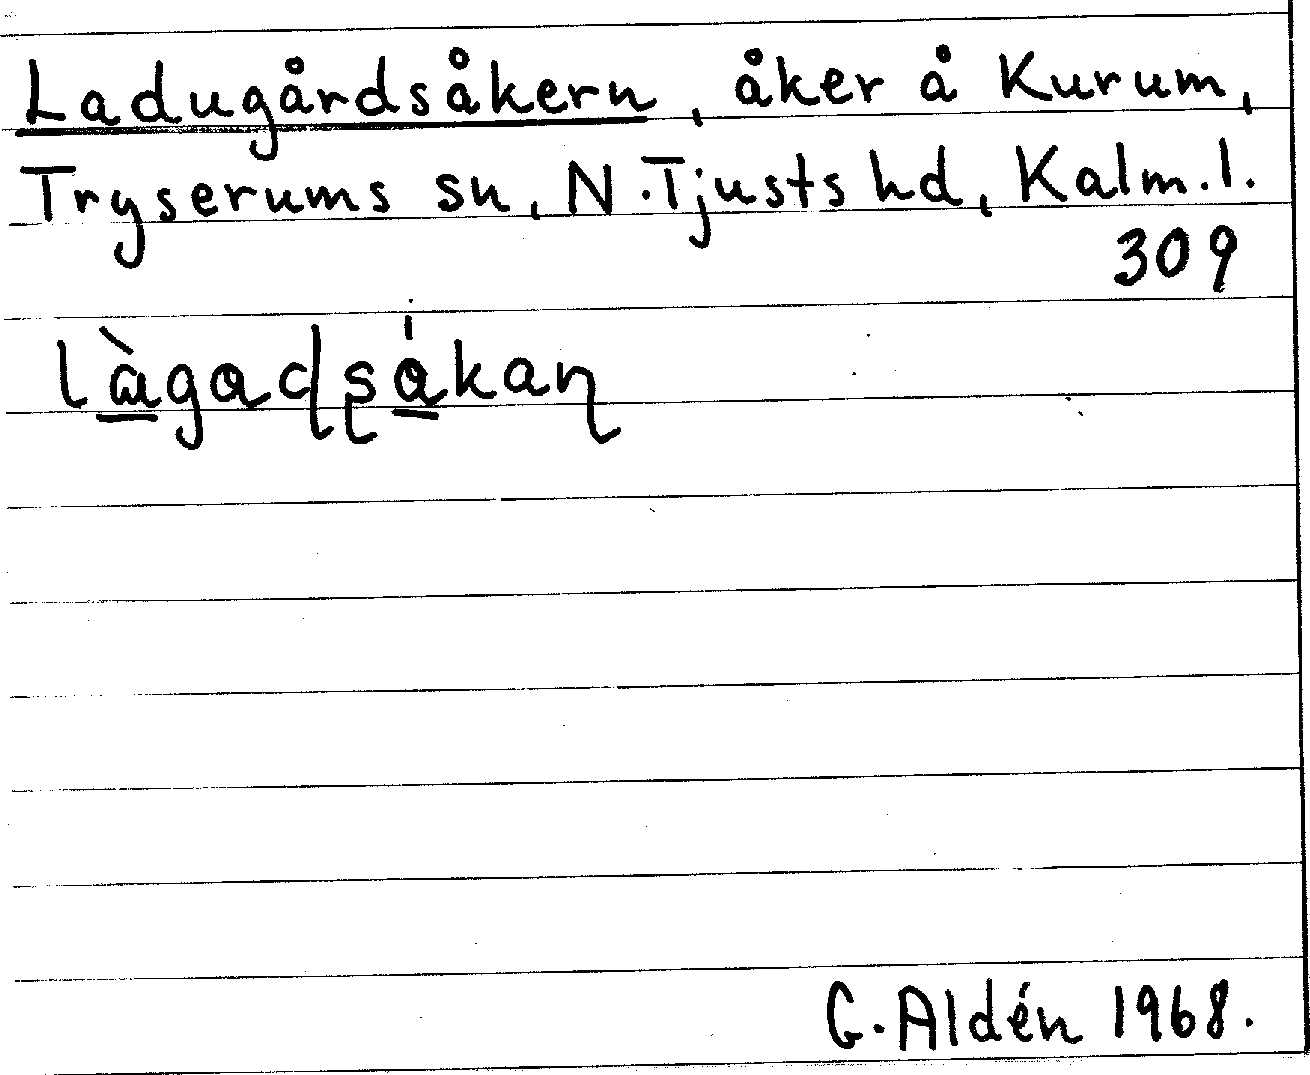 Ladugårdsåkern, åker å Kurum,
Tryserums sn, N. Tjusts hd, Kalm. l.
309
làgaɖʂákaɳ
G. Aldén 1968.